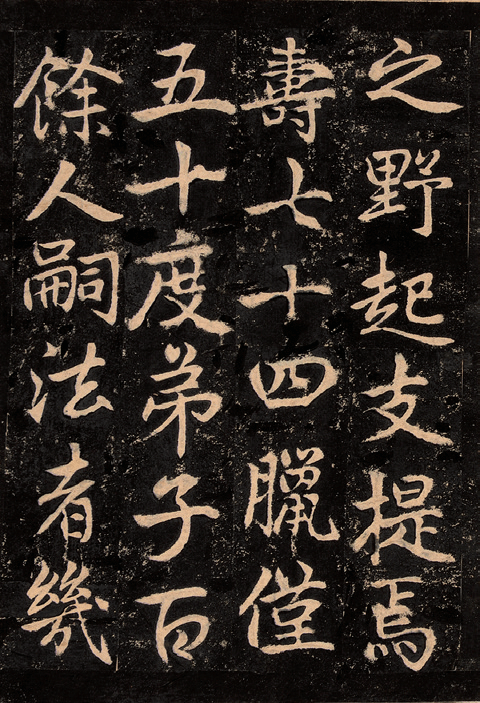 之野起支提焉
壽七十四臘僅
五十度弟子百
餘人嗣法者幾